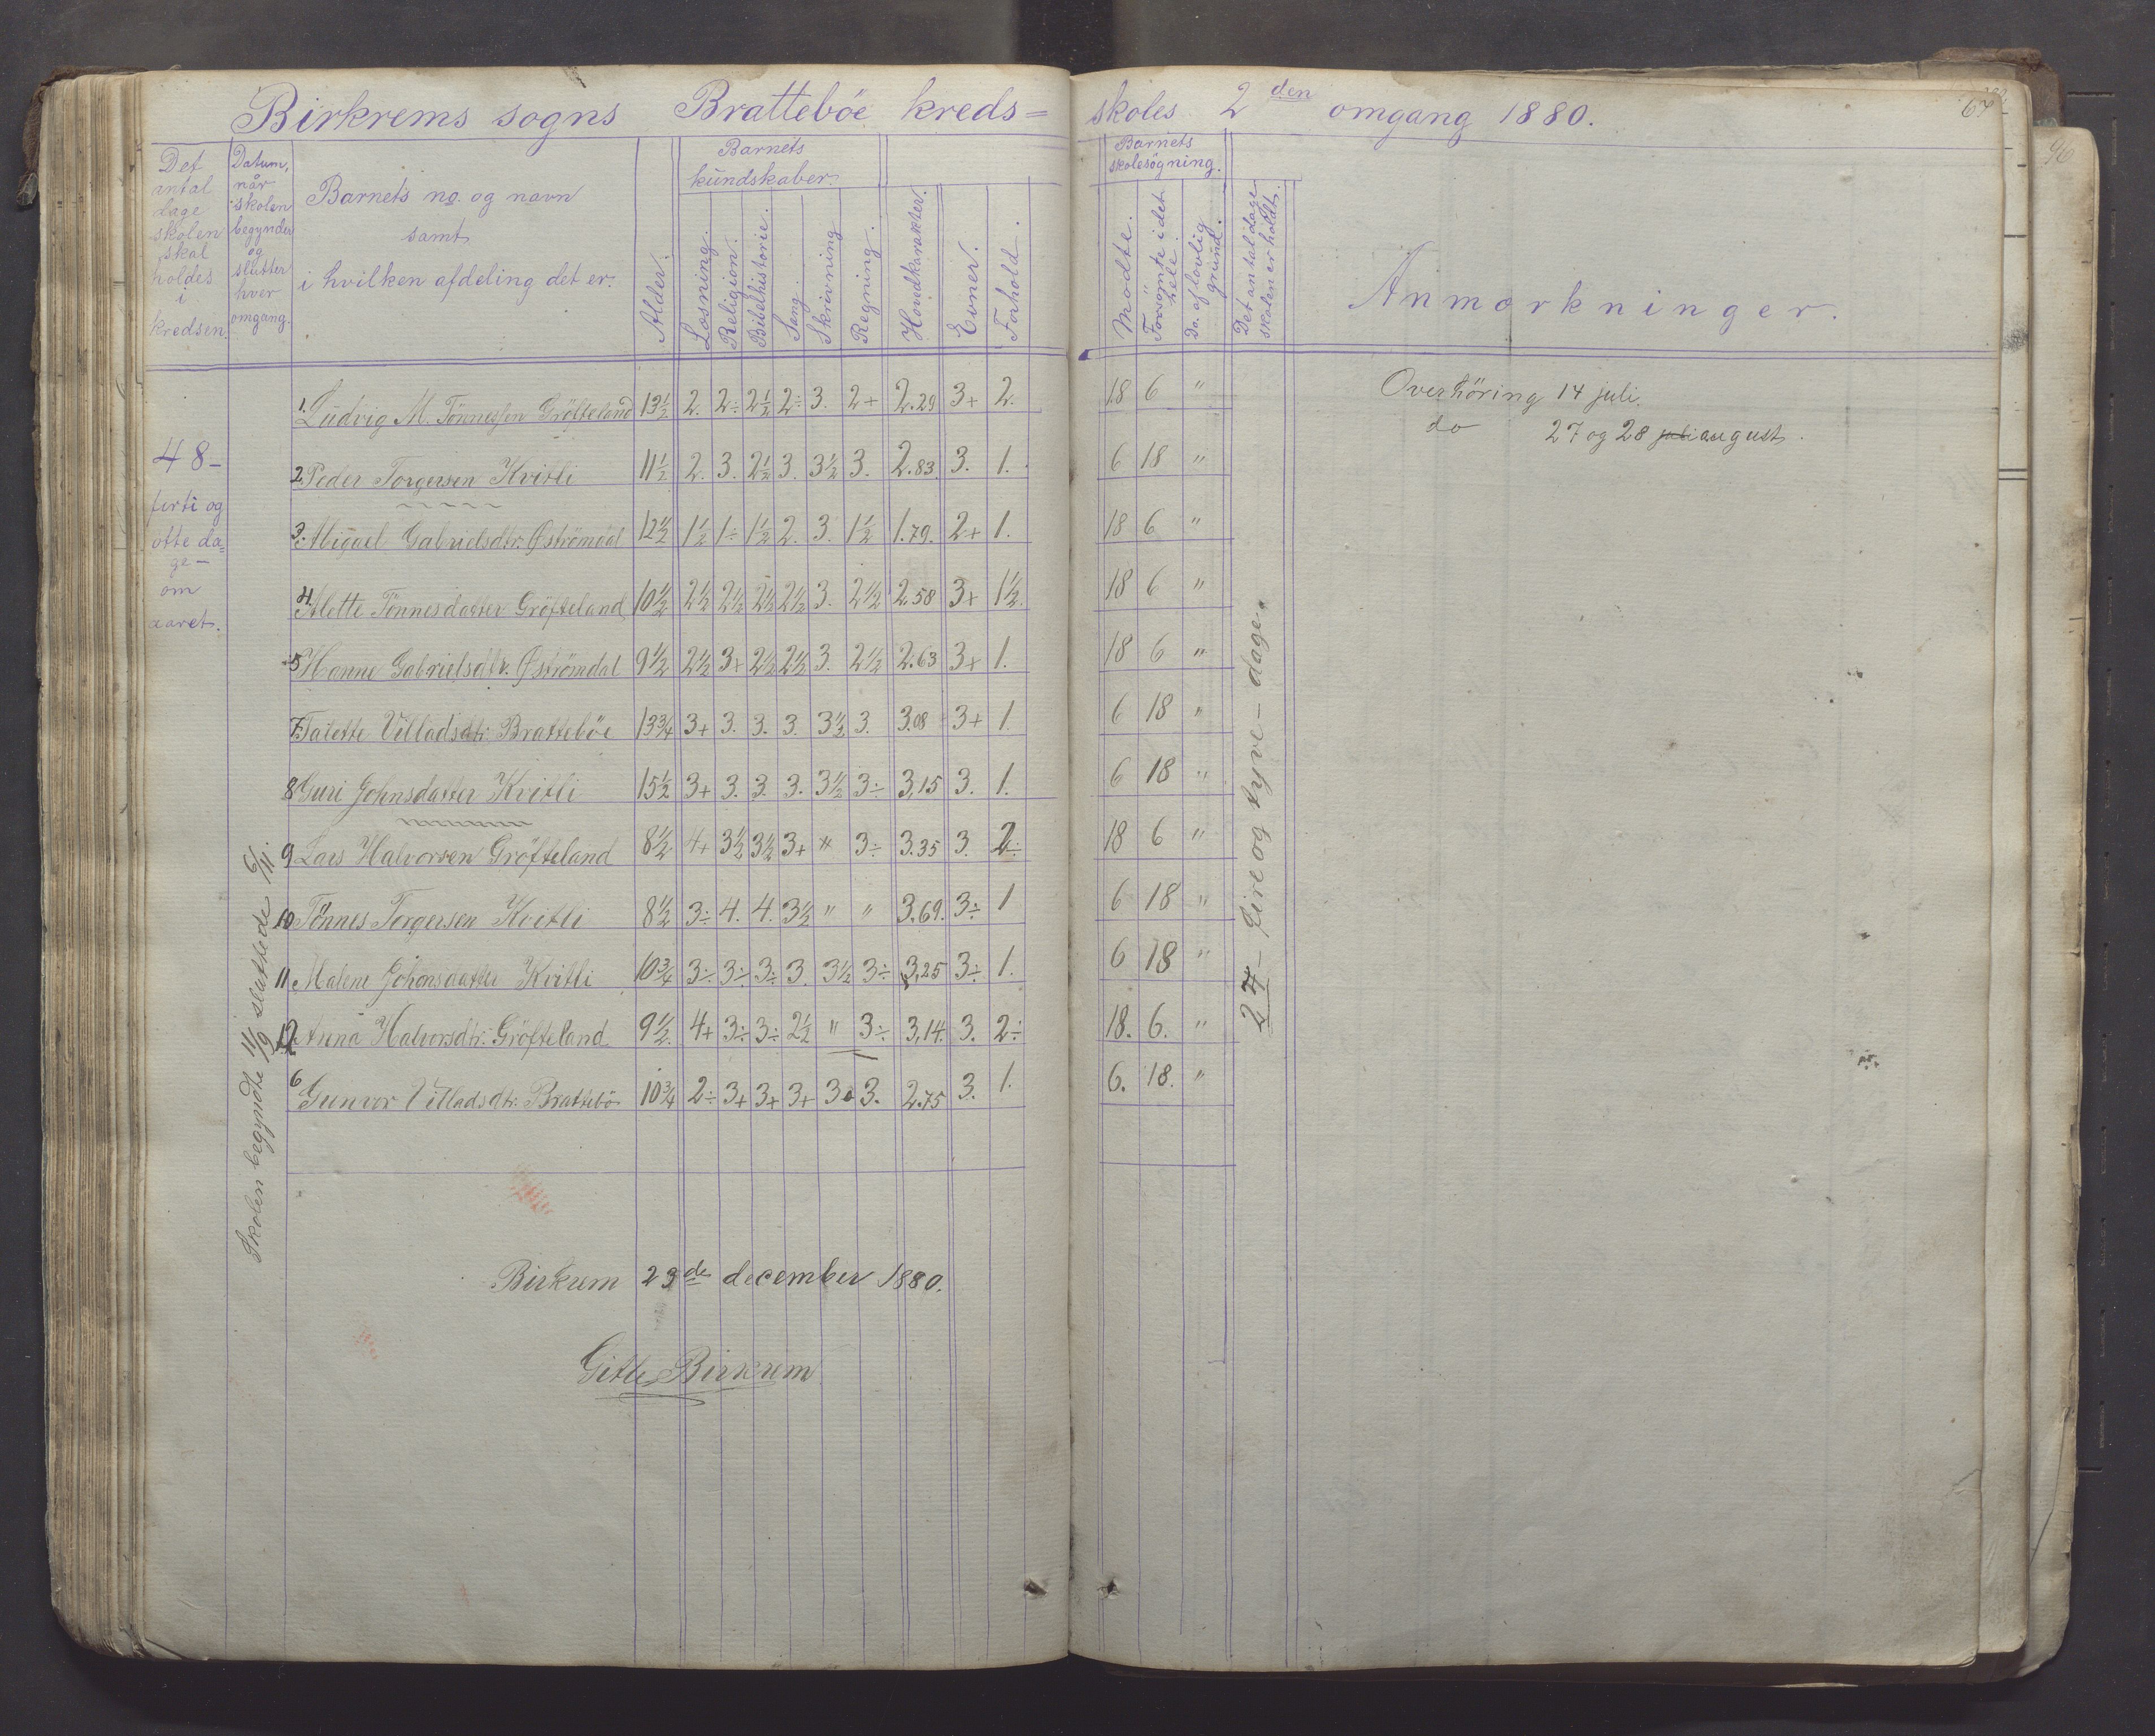 Birkrems sogns Bratteböe kreds= skoles 2den omgang 1880.
67
96
Det antal dage skolen skal holdes i kredsen.
Datum, når skolen begynder og slutter hver omgang.
Barnets no. og navn
samt
i hvilken afdeling det er.
Alder.
Barnets kundskaber.
Læsning.
Religion.
Bibelhistorie.
Sang.
Skrivning
Regning.
Hovedkarakter.
Evner.
Forhold.
Barnets skolesögning.
Mødte.
Forsømte i det hele.
Do. af lovlig grund.
Det antal dage skolen er holdt.
Anmærkninger.
48-
ferti og
otte da=
ge-
om
aaret.
Skolen begyndte 11/9 sluttede 6/11.
1. Ludvig M. Tönnessen Gröfteland 13½ 2. 2÷ 2½ 2÷ 3. 2+ 2.29 3+ 2. 18 6 "
2 Peder Torgersen Kvitli 11½ 2. 3. 2½ 3. 3½ 3. 2.83. 3. 1. 6 18 "
3. Abigael Gabrielsdtr. Øströmdal 12½ 1½ 1÷ 1½ 2. 3. 1½ 1.79. 2+ 1. 18 6 "
4. Alette Tönnesdatter Gröfteland 10½ 2½ 2½ 2½ 2½ 3. 2½ 2.58 3+ 1½. 18 6 "
5 Hanne Gabrielsdtr. Øströmdal 9½ 2½ 3+ 2½ 2½ 3. 2½ 2.63 3+ 1. 18 6 "
7. Talette Villadsdtr. Bratteböe 13¾ 3+ 3. 3. 3. 3½ 3. 3.08 3+ 1 6 18 "
8 Guri Johnsdatter Kvitli 15½ 3+ 3. 3. 3. 3½ 3÷ 3,15 3. 1. 6 18 "
9 Lars Halvorsen Gröfteland 8½ 4+ 3½ 3½ 3+ " 3÷ 3.35 3. 2÷ 18 6 "
10 Tönnes Torgersen Kvitli 8½ 3÷ 4. 4. 3½ " " 3.69. 3÷ 1 6 18 "
11 Malene Johonsdatter Kvitli 10¾ 3÷ 3÷ 3÷ 3. 3½ 3÷ 3,25 3÷ 1. 6 18 "
12 Anna Halvorsdtr. Gröfteland 9½. 4+ 3÷ 3÷ 2½ " 3÷ 3,14. 3. 2÷ 18. 6. "
6 Gunvor Villadsdtr. Brattebö 10¾ 2÷ 3+ 3+ 3+ 3 3. 2.75 3. 1. 6. 18. "
24 - fire og tyve - dage.
Overhöring 14 juli.
do 27 og 28 juli august.
Birkrem 23de december 1880.
Gitle Birkrem